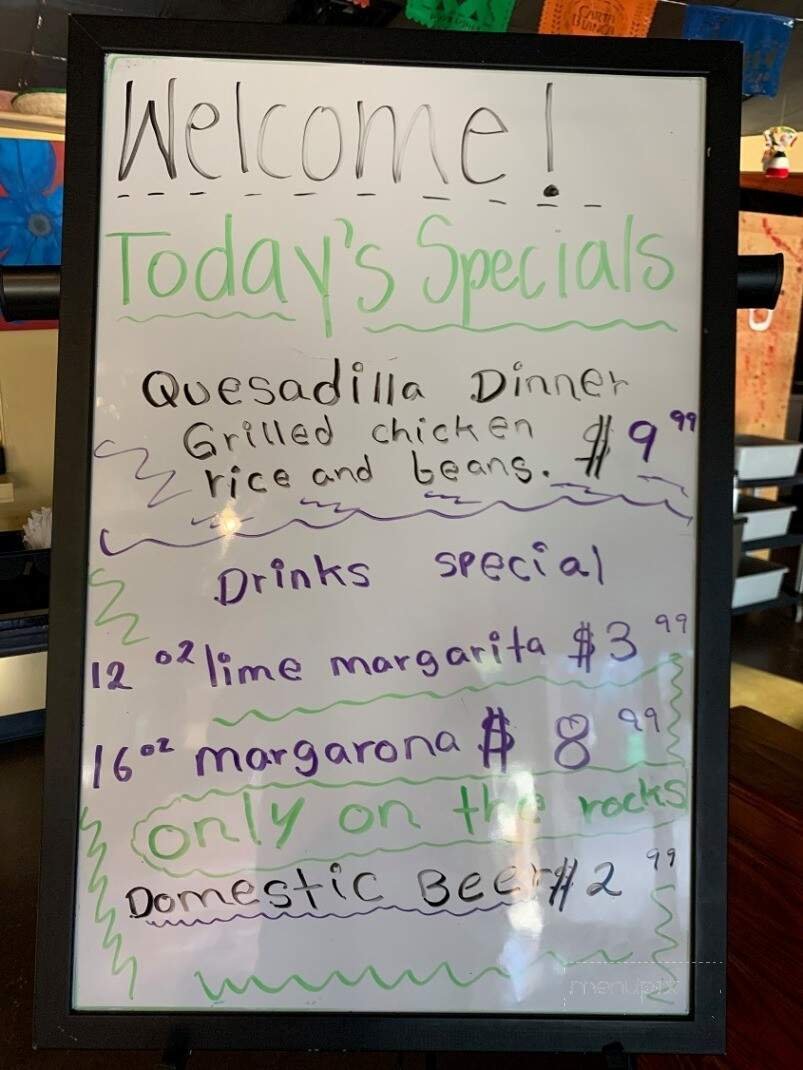 CARTA BLANCA
Welcome!
Today's Specials
Quesadilla Dinner
Grilled chicken
rice and beans. $9 99
Drinks special
12 oz lime margarita $3 99
16 oz margarona $ 8 99
only on the rocks
Domestic Beer $2 99
menupix